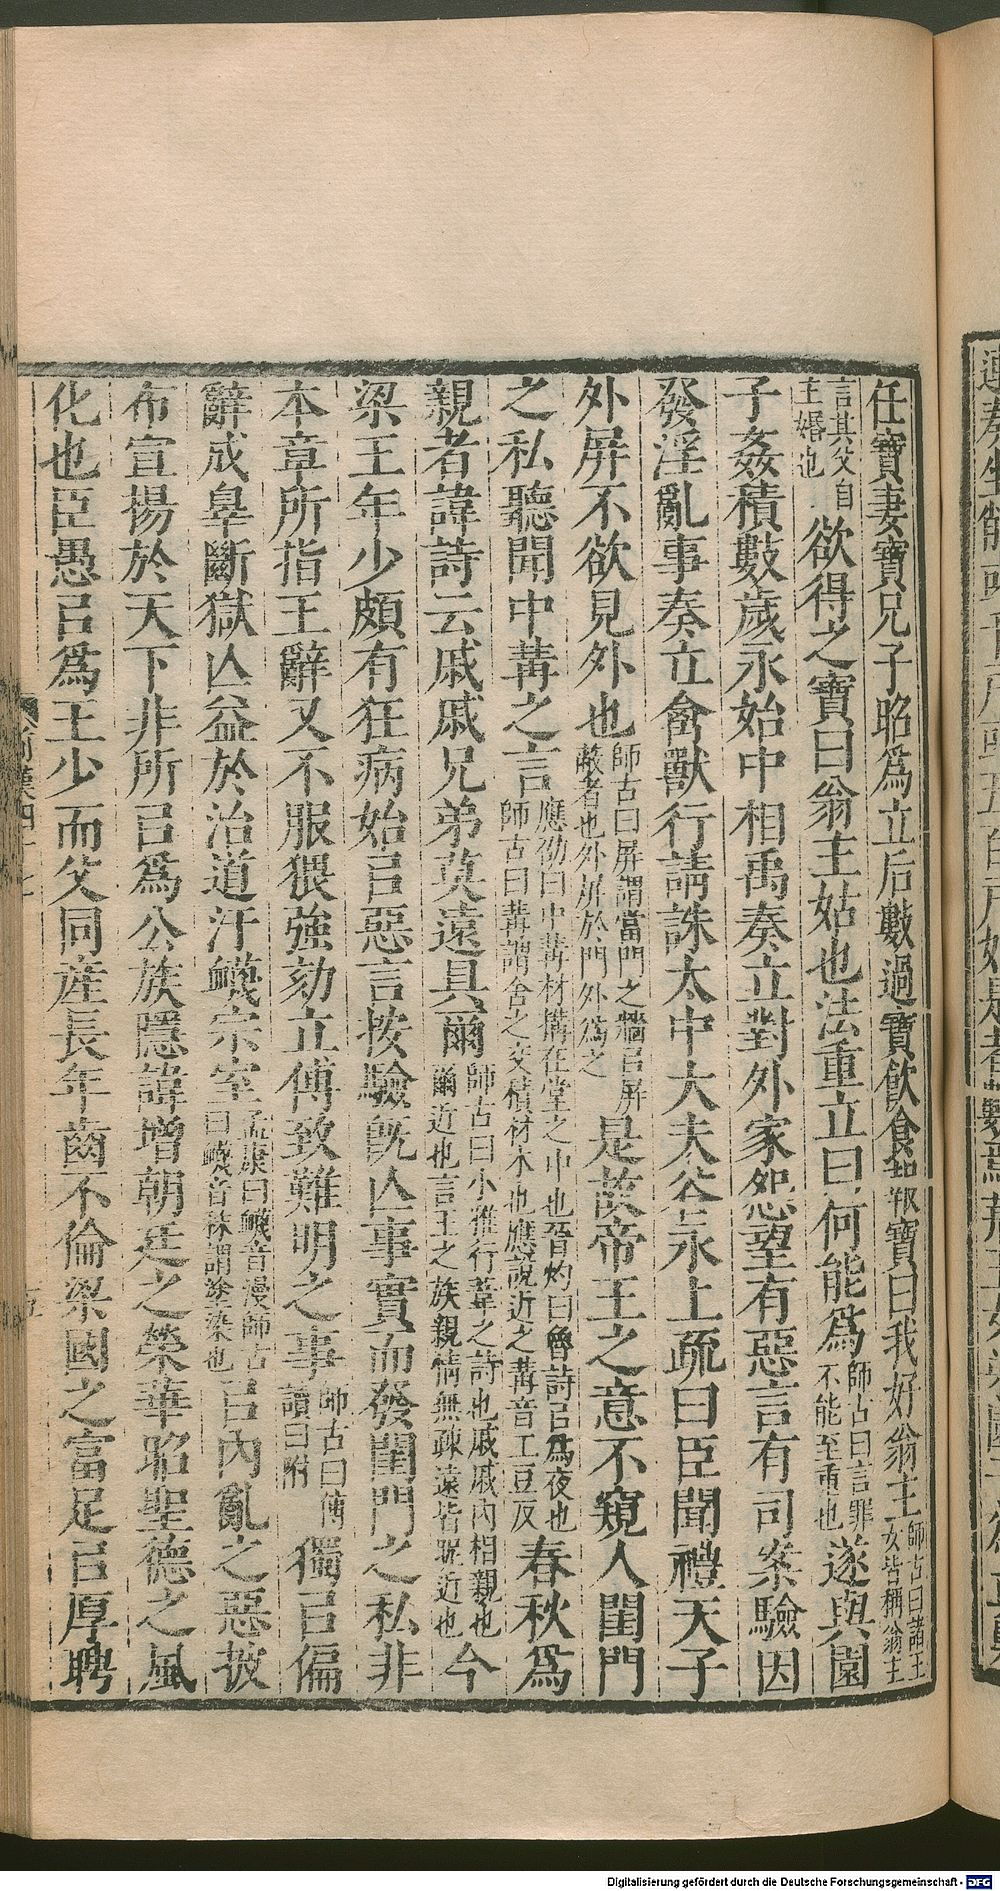 任寶妻寶兄子昭爲立后數過寶飲食報寶曰我好翁主師古曰諸王女皆稱翁主
言其父自主婚也欲得之寶曰翁主姑也法重立曰何能爲師古曰言罪不能至重也遂與園
子姦積數歲永始中相禹奏立對外家怨望有惡言有司案驗因
發淫亂事奏立禽獸行請誅太中大夫谷永上疏曰臣聞禮天子
外屏不欲見外也師古曰屏謂當門之牆㠯屏蔽者也外屏於門外爲之是故帝王之意不窺人閨門
之私聽聞中冓之言應劭曰中冓材構在堂之中也晉灼曰魯詩㠯爲夜也師古曰冓謂舍之交積材木也應說近之冓音工豆反春秋爲
親者諱詩云戚戚兄弟莫遠具爾師古曰小雅行葦之詩也戚戚內相親也爾近也言王之族親情無疎遠皆昵近也今
梁王年少頗有狂病始㠯惡言按驗既亾事實而發閨門之私非
本章所指王辭又不服猥強劾立傅致難明之事師古曰傅讀曰附獨㠯偏
辭成辠斷獄亾益於治道汙衊宗室孟康曰衊音漫師古曰衊音秣謂塗染也㠯內亂之惡披
布宣揚於天下非所㠯爲公族隱諱增朝廷之榮華昭聖德之風
化也臣愚㠯爲王少而父同産長年齒不倫梁國之富足㠯厚聘
前漢四十七
Digitalisierung gefördert durch die Deutsche Forschungsgemeinschaft - DFG